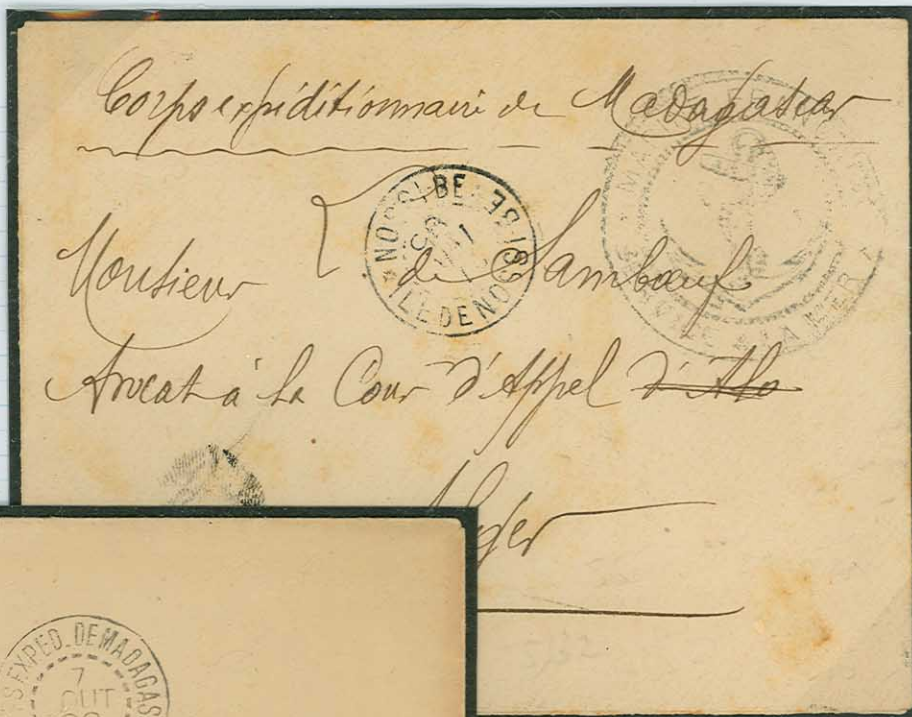 Corps expéditionnaire de Madagascar
NOSSI-BE
ILE DE NOSSI BE
SERVICE A LA MER
Monsieur de Sambœuf
Avocat à la Cour d'Appel
Alger
PS EXPED. DE MADAGAS
7
OUT